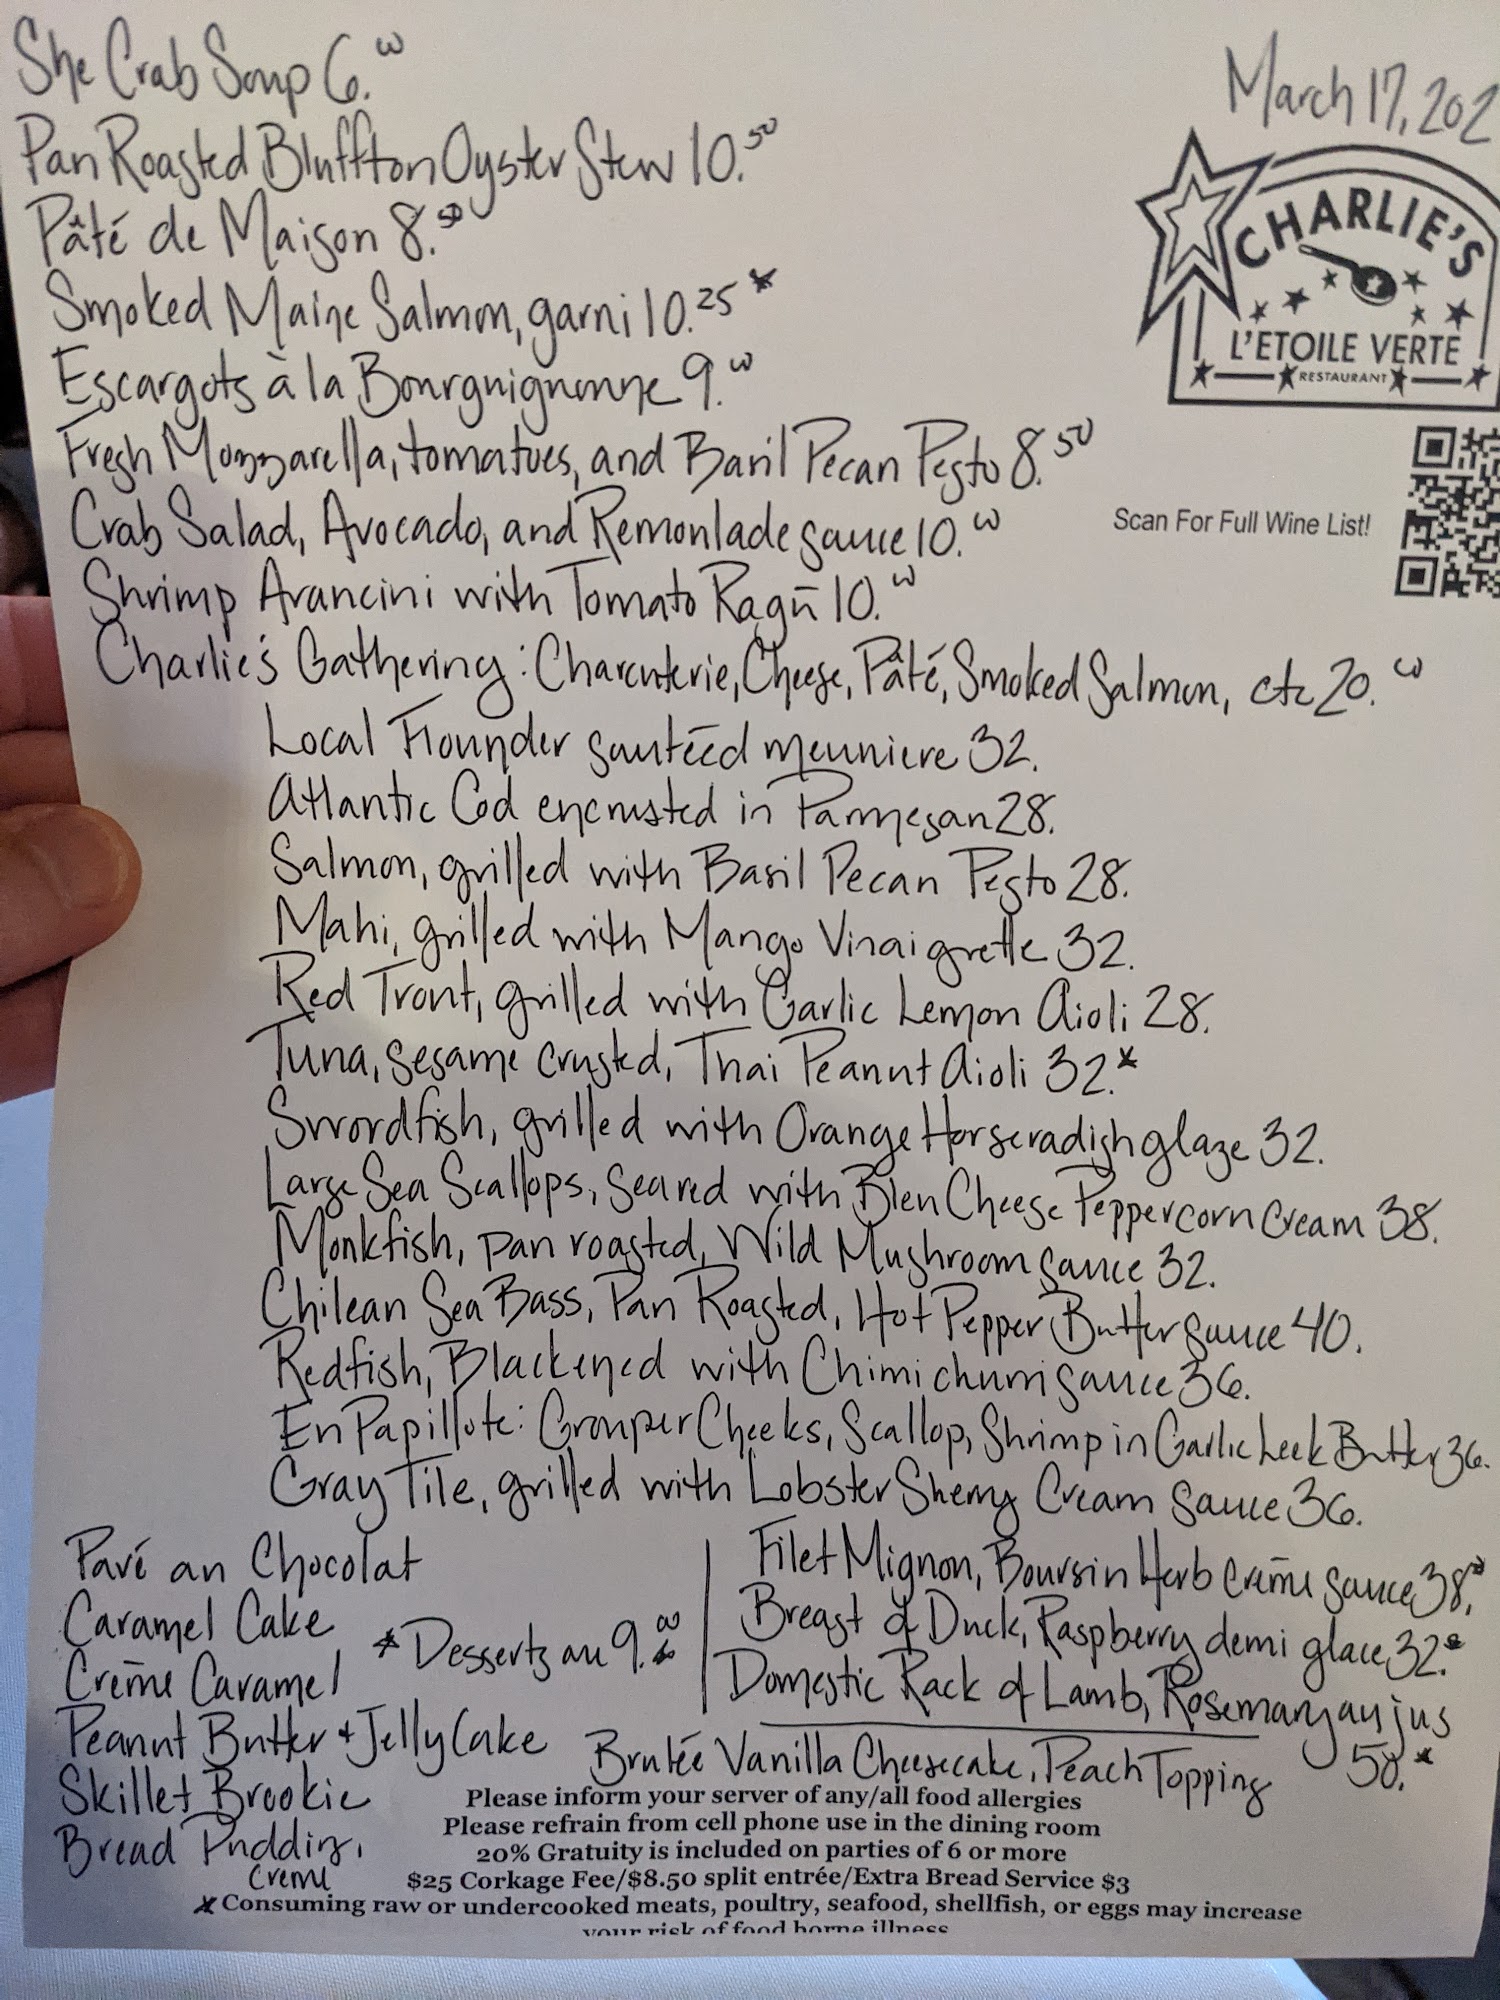 She Crab Soup 6.00
March 17, 202
Pan Roasted Bluffton Oyster Stew 10.50
Pâté de Maison 8.50
Smoked Maine Salmon, garni 10.25*
Escargots à la Bourguignonne 9.00
Fresh Mozzarella, tomatoes, and Basil Pecan Pesto 8.50
Crab Salad, Avocado, and Remoulade sauce 10.00
Shrimp Arancini with Tomato Ragū 10.00
Charlie's Gathering: Charcuterie, Cheese, Pâté, Smoked Salmon, etc 20.00
CHARLIE'S
L'ETOILE VERTE
RESTAURANT
Scan For Full Wine List!
Local Flounder sautéed meuniere 32.
Atlantic Cod encrusted in Parmesan 28.
Salmon, grilled with Basil Pecan Pesto 28.
Mahi, grilled with Mango Vinaigrette 32.
Red Trout, grilled with Garlic Lemon Aioli 28.
Tuna, sesame crusted, Thai Peanut Aioli 32.*
Swordfish, grilled with Orange Horseradish glaze 32.
Large Sea Scallops, Seared with Bleu Cheese Peppercorn Cream 38.
Monkfish, pan roasted, Wild Mushroom sauce 32.
Chilean Sea Bass, Pan Roasted, Hot Pepper Butter Sauce 40.
Redfish, Blackened with Chimichurri sauce 36.
En Papillote: Grouper Cheeks, Scallop, Shrimp in Garlic Leek Butter 36.
Gray Tile, grilled with Lobster Sherry Cream Sauce 36.
Pavé au Chocolat
Caramel Cake
Crème Caramel
Peanut Butter + Jelly Cake
Skillet Brookie
Bread Pudding,
Creme
* Desserts are 9.00
Filet Mignon, Boursin Herb Crème Sauce 38.*
Breast of Duck, Raspberry demi glace 32.*
Domestic Rack of Lamb, Rosemary au jus
50.*
Brulée Vanilla Cheesecake, Peach Topping
Please inform your server of any/all food allergies
Please refrain from cell phone use in the dining room
20% Gratuity is included on parties of 6 or more
$25 Corkage Fee/$8.50 split entrée/Extra Bread Service $3
* Consuming raw or undercooked meats, poultry, seafood, shellfish, or eggs may increase
your risk of food borne illness